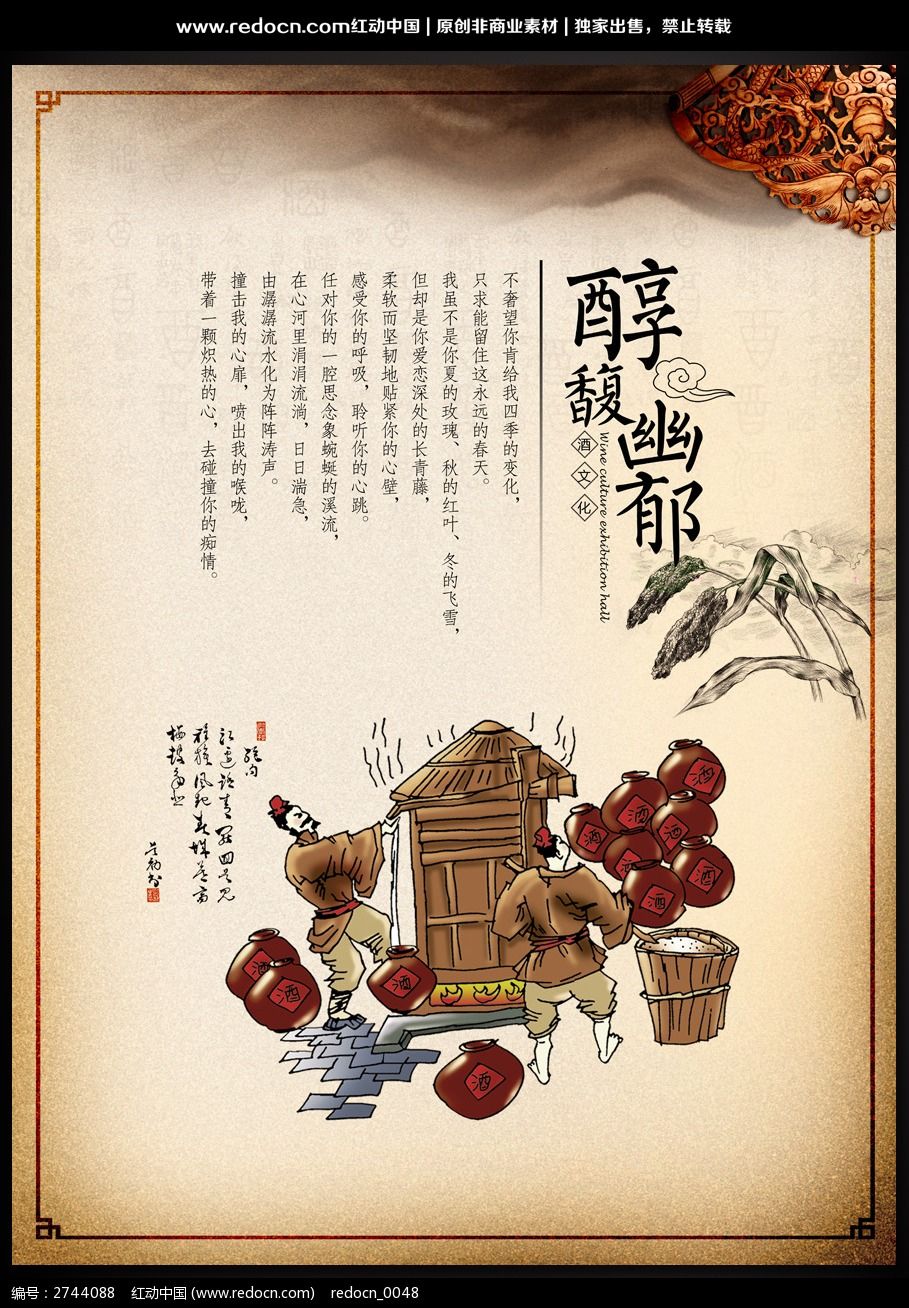 www.redocn.com红动中国 | 原创非商业素材 | 独家出售，禁止转载
醇馥幽郁
酒文化
Wine culture exhibition hall
不奢望你肯给我四季的变化，
只求能留住这永远的春天。
我虽不是你夏的玫瑰、秋的红叶、冬的飞雪，
但却是你爱恋深处的长青藤，
柔软而坚韧地贴紧你的心壁，
感受你的呼吸，聆听你的心跳。
任对你的一腔思念象蜿蜒的溪流，
在心河里涓涓流淌，日日湍急，
由潺潺流水化为阵阵涛声。
撞击我的心扉，喷出我的喉咙，
带着一颗炽热的心，去碰撞你的痴情。
酒
酒
酒
酒
酒
酒
酒
酒
酒
酒
酒
编号：2744088 红动中国 (www.redocn.com) redocn_0048